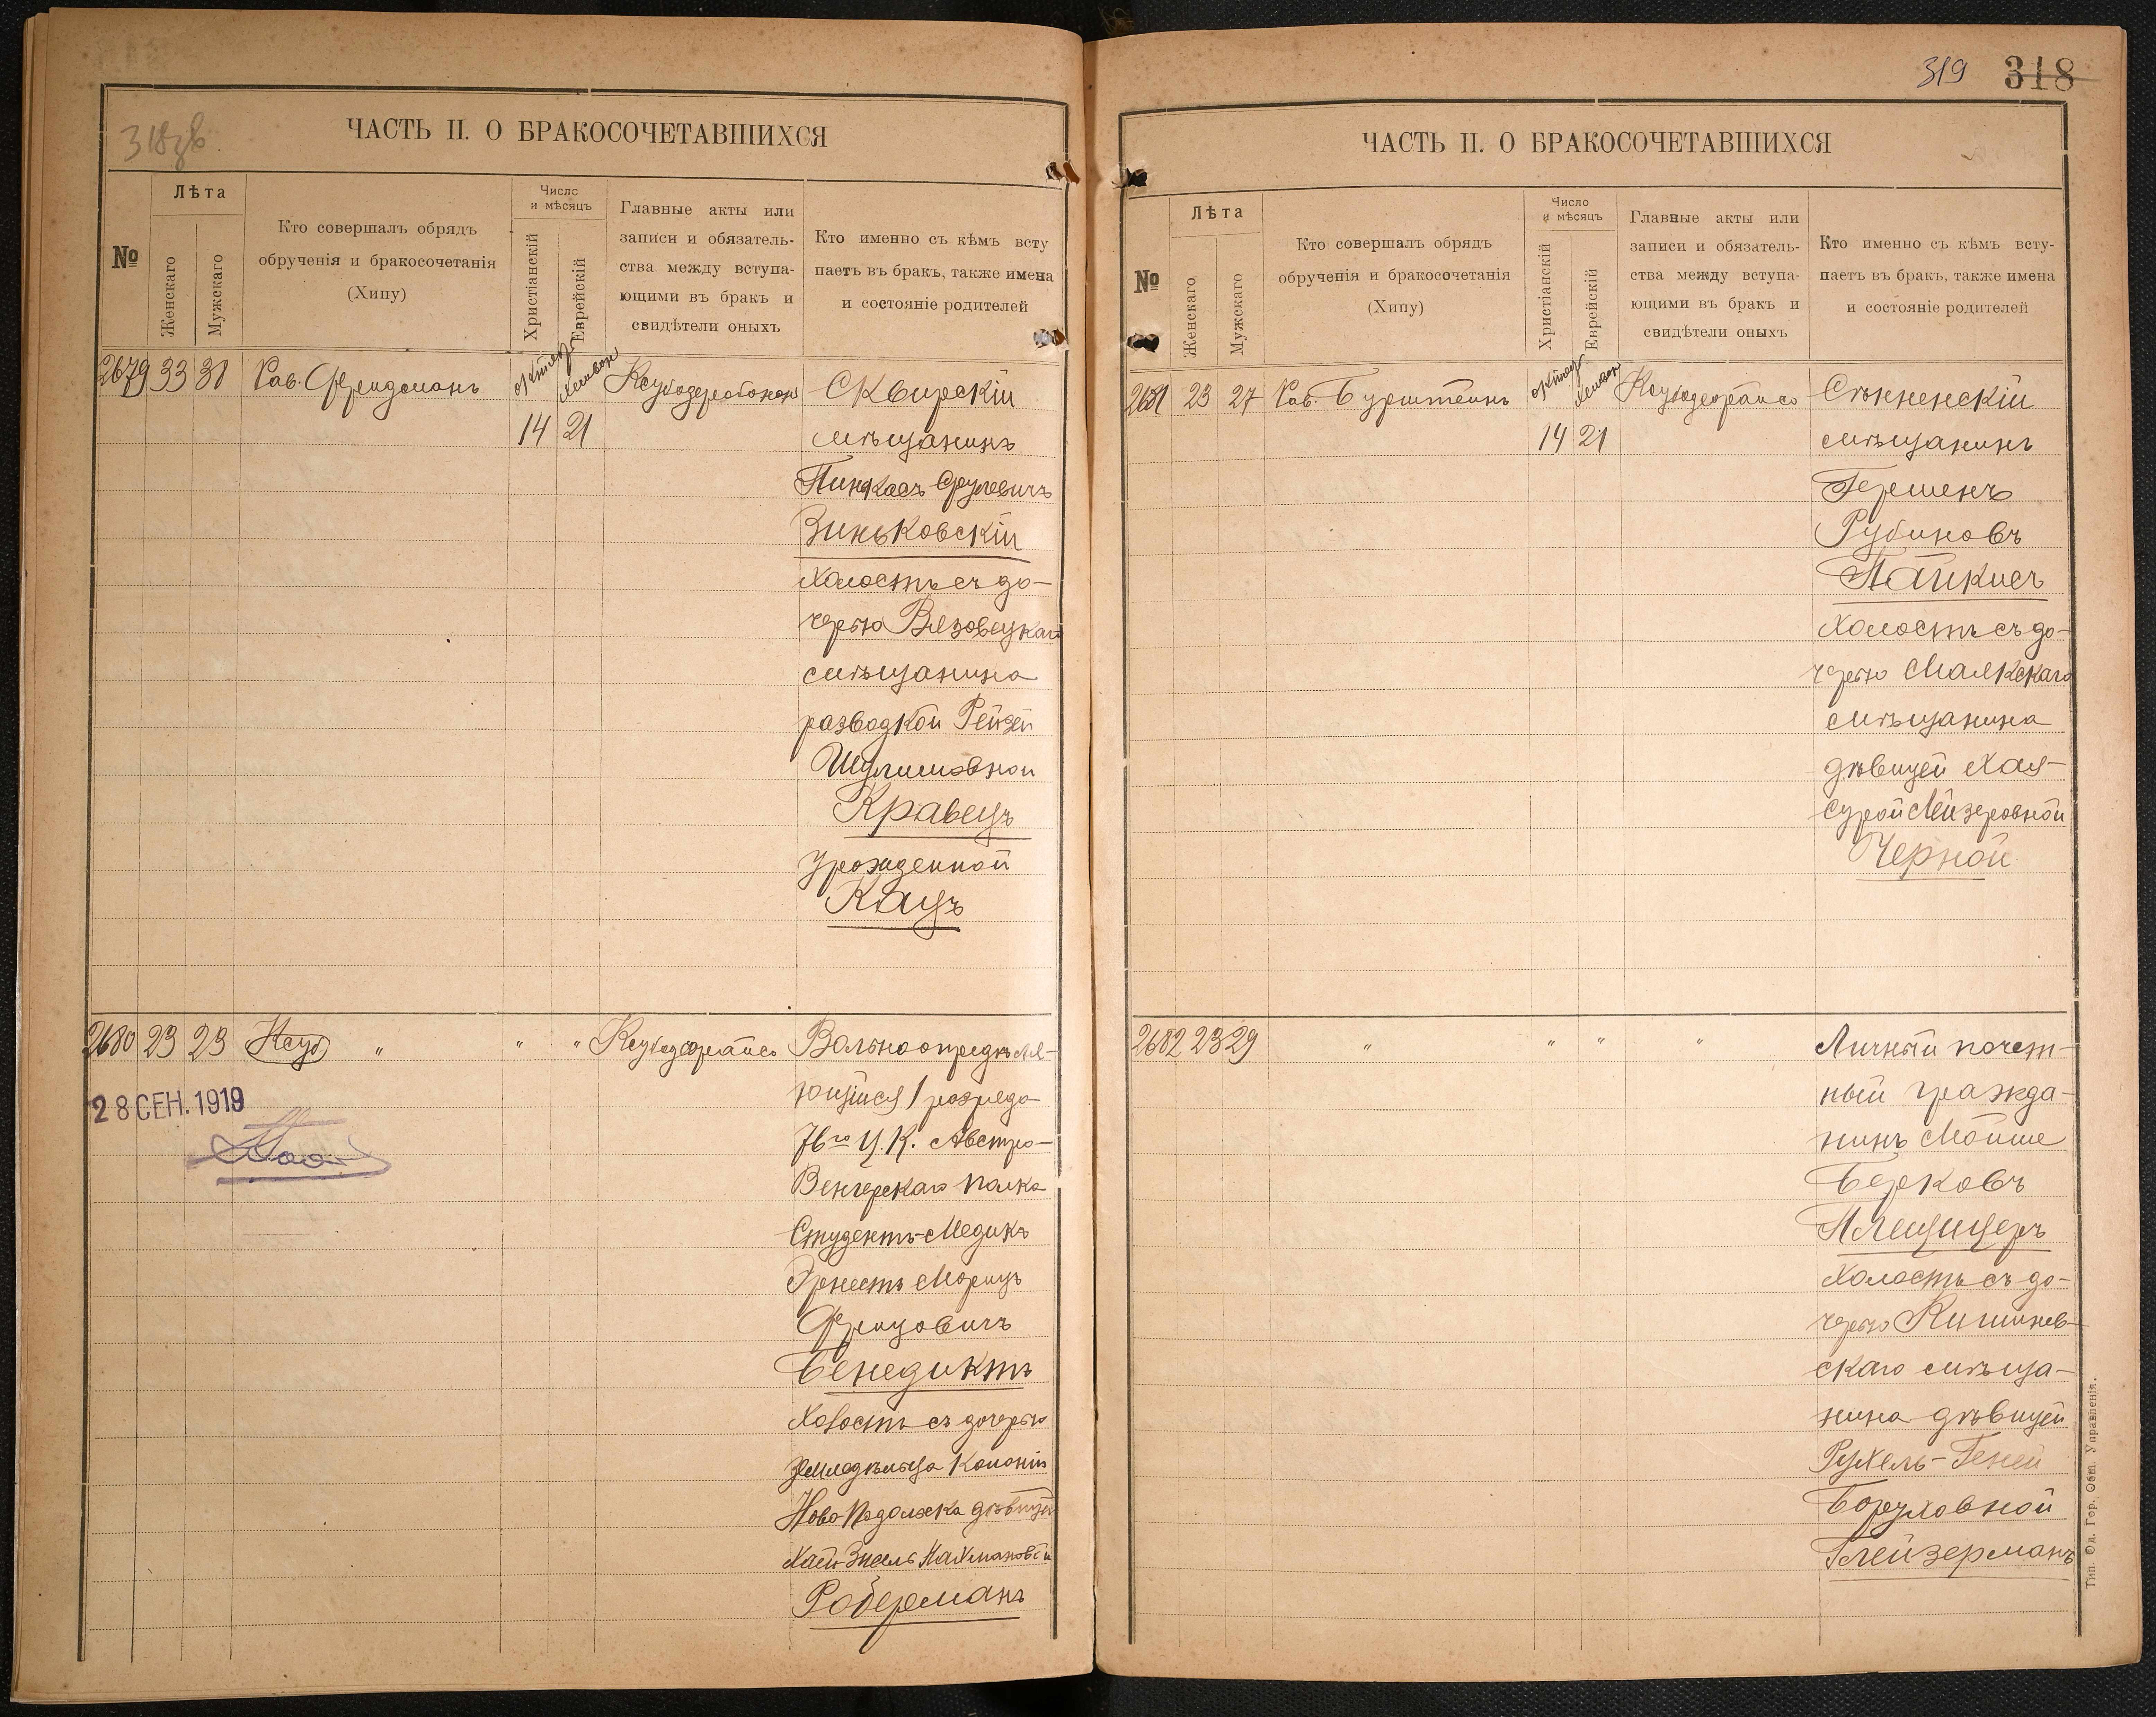 318зв
ЧАСТЬ II. О БРАКОСОЧЕТАВШИХСЯ
№
Лѣта
Женскаго
Мужскаго
Кто совершалъ обрядъ
обрученія и бракосочетанія
(Хипу)
Число
и мѣсяцъ
Христіанскій
Еврейскій
Главные акты или
записи и обязатель-
ства между вступа-
ющими въ бракъ и
свидѣтели оныхъ
Кто именно съ кѣмъ всту
паетъ въ бракъ, также имена
и состояніе родителей
2679 33 31 Рав. Фрицманъ
14 21
Сквирскій
мѣщанинъ
Пинкасъ Срулевичъ
Зиньковскій
холостъ съ до-
черью Вязовецкаго
мѣщанина
разводкой Рейзей
Шулимовной
Кравецъ
урожденной
Кацъ
2680 23 23 „ „ „
28 СЕН. 1919
Вольноопредѣля-
ющійся 1 разряда
76го Ц.К. Австро-
Венгерскаго полка
Студентъ-Медикъ
Эрнестъ Морицъ
Фрицовичъ
Бенедиктъ
Холостъ съ дочерью
земледѣльца Колоніи
Ново Подольска дѣвицей
Хаей-Энель Нахмановой
Роберманъ
319 318
ЧАСТЬ II. О БРАКОСОЧЕТАВШИХСЯ
№
Лѣта
Женскаго
Мужскаго
Кто совершалъ обрядъ
обрученія и бракосочетанія
(Хипу)
Число
и мѣсяцъ
Христіанскій
Еврейскій
Главные акты или
записи и обязатель-
ства между вступа-
ющими въ бракъ и
свидѣтели оныхъ
Кто именно съ кѣмъ всту-
паетъ въ бракъ, также имена
и состояніе родителей
2681 23 27 Рав. Бурштейнъ
14 21
Сѣнненскій
мѣщанинъ
Гершенъ
Рубиновъ
Пайкисъ
холостъ съ до-
черью Маякскаго
мѣщанина
дѣвицей Хая-
Сурой Лейзеровной
Черной
2682 23 29 „ „ „ „
Личный почет-
ный гражда-
нинъ Мойше
Берковъ
Плещицеръ
Холостъ съ до-
черью Кишинев-
скаго мѣща-
нина дѣвицей
Рухель-Геней
Боруховной
Глейзерманъ
Тип. Од. Гор. Общ. Управленія.